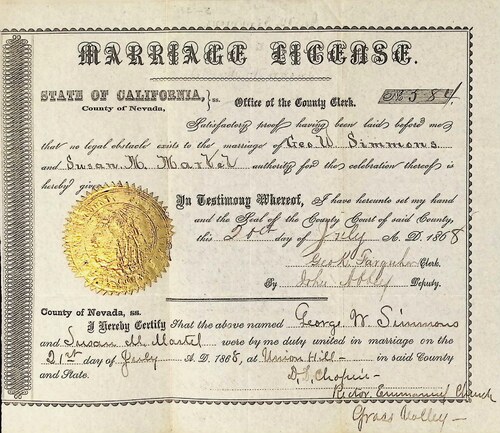 MARRIAGE LICENSE.
STATE OF CALIFORNIA, } ss. Office of the County Clerk. No 384
County of Nevada,
Satisfactory proof having been laid before me
that no legal obstacle exists to the marriage of Geo W Simmons
and Susan M. Markel authority for the celebration thereof is
hereby given
In Testimony Whereof, I have hereunto set my hand
and the Seal of the County Court of said County,
this 21st day of July A. D. 1868
Geo K. Farquhar Clerk.
By John Deputy.
County of Nevada, ss.
I Hereby Certify That the above named George W. Simmons
and Susan M. Martel were by me duly united in marriage on the
21st day of July A. D. 1868, at Union Hill in said County
and State.
D. S. Chapin
Rector Emmanuel Church
Grass Valley